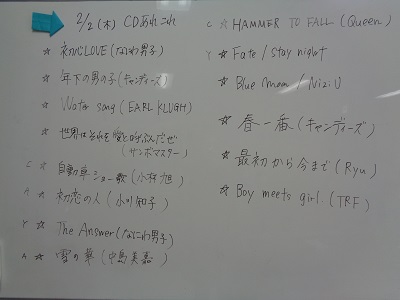 2/2(木) CDあれこれ
☆ 初心LOVE(なにわ男子)
☆ 年下の男の子(キャンディーズ)
☆ Water song (EARL KLUGH)
☆ 世界はそれを愛と呼ぶんだぜ
(サンボマスター)
☆ 自動車ショー歌(小林旭)
A ☆ 初恋の人(小川知子)
Y ☆ The Answer(なにわ男子)
A ☆ 雪の華(中島美嘉)
C ☆ HAMMER TO FALL (Queen)
Y ☆ Fate/stay night
☆ Blue Moon / NiziU
☆ 春一番(キャンディーズ)
☆ 最初から今まで(Ryu)
☆ Boy meets girl (TRF)